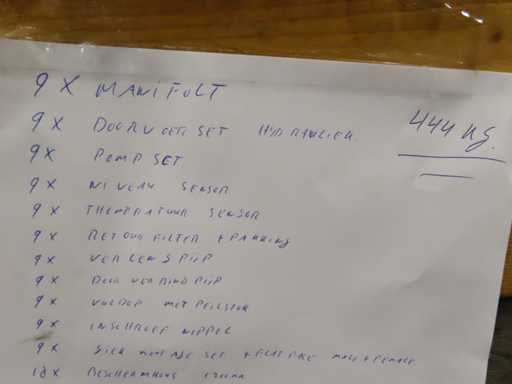 9 X MANIFOLT
9 X DOORVOER SET HYDRAULIEK
444 KG.
9 X POMP SET
9 X NIVEAU SENSOR
9 X THEMPRATUUR SENSOR
9 X RETOUR FILTER + PAKKING
9 X VERLENGPIJP
9 X DOOR VERBINDPIJP
9 X VULDOP MET PEILSTOK
9 X INSCHROEF NIPPEL
9 X MONTAGE SET + FLAT FACE MALE + FEMALE
18 X BESCHERMING